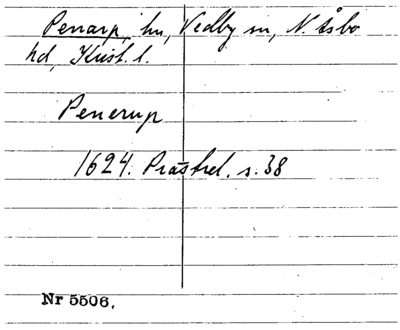 Penarp, hn, Vedby sn, N. Åsbo
hd, Krist. l.
Penerup
1624. Prästrel. s. 38
Nr 5506.